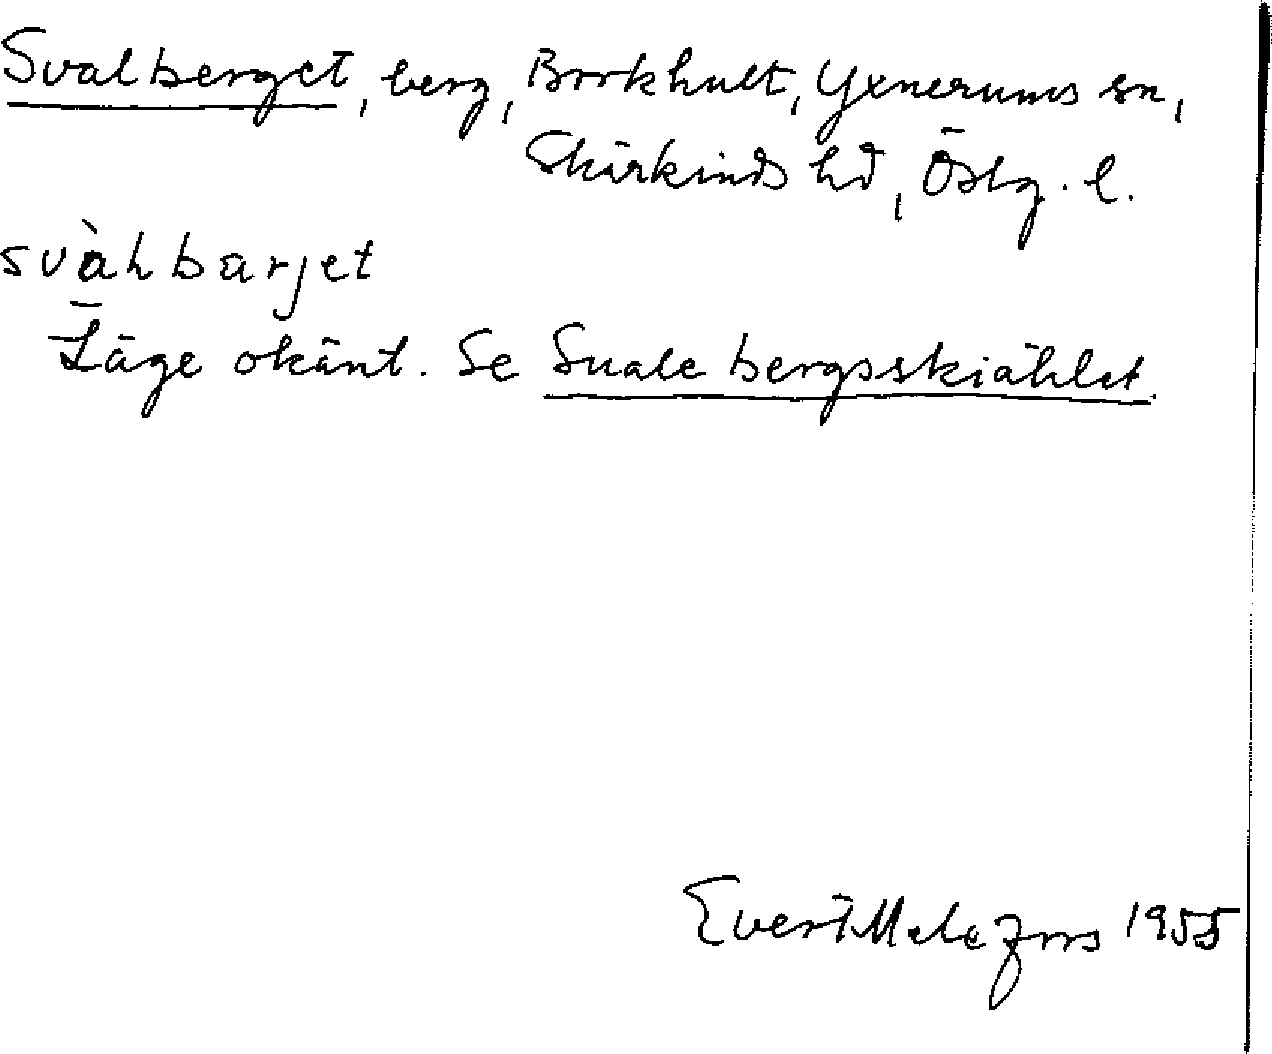 Svalberget, berg, Brokhult, Yxnerums sn,
Skärkinds hd, Östg. l.
svàlbarjet
Läge okänt. Se Suale bergsskiählet
Evert Melefors 1955